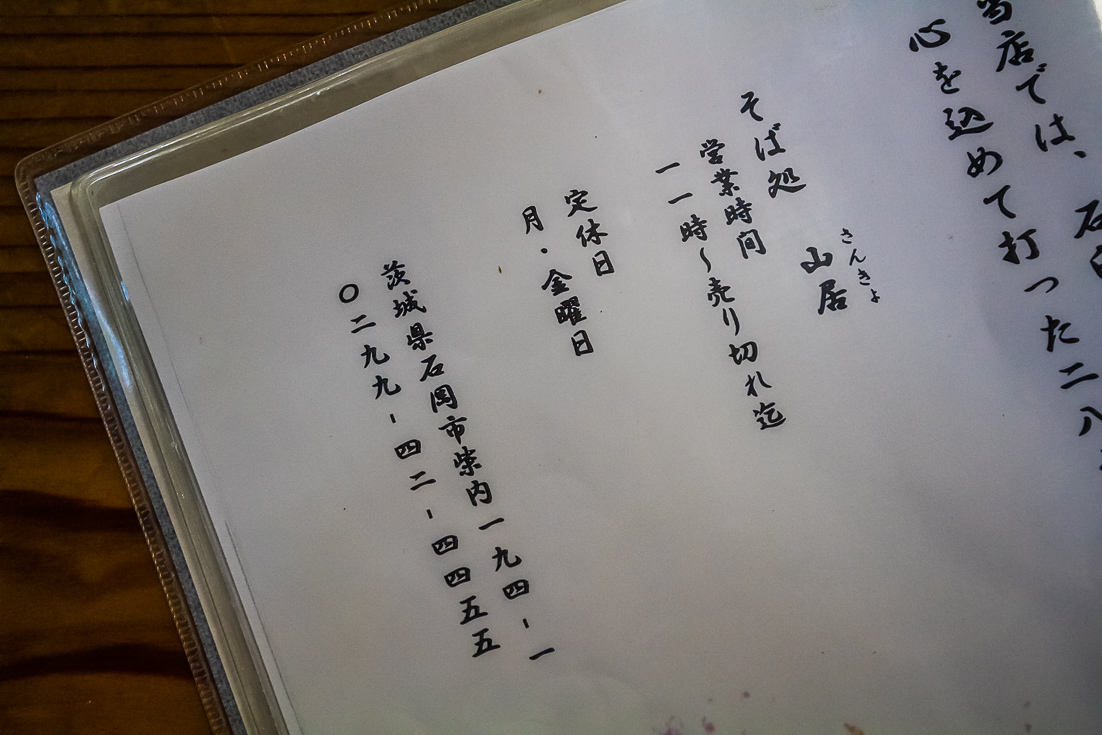 当店では、石臼
心を込めて打った二八
そば処　山居
さんきょ
営業時間
一一時～売り切れ迄
定休日
月・金曜日
茨城県石岡市柴内一九四-一
〇二九九-四二-四四五五